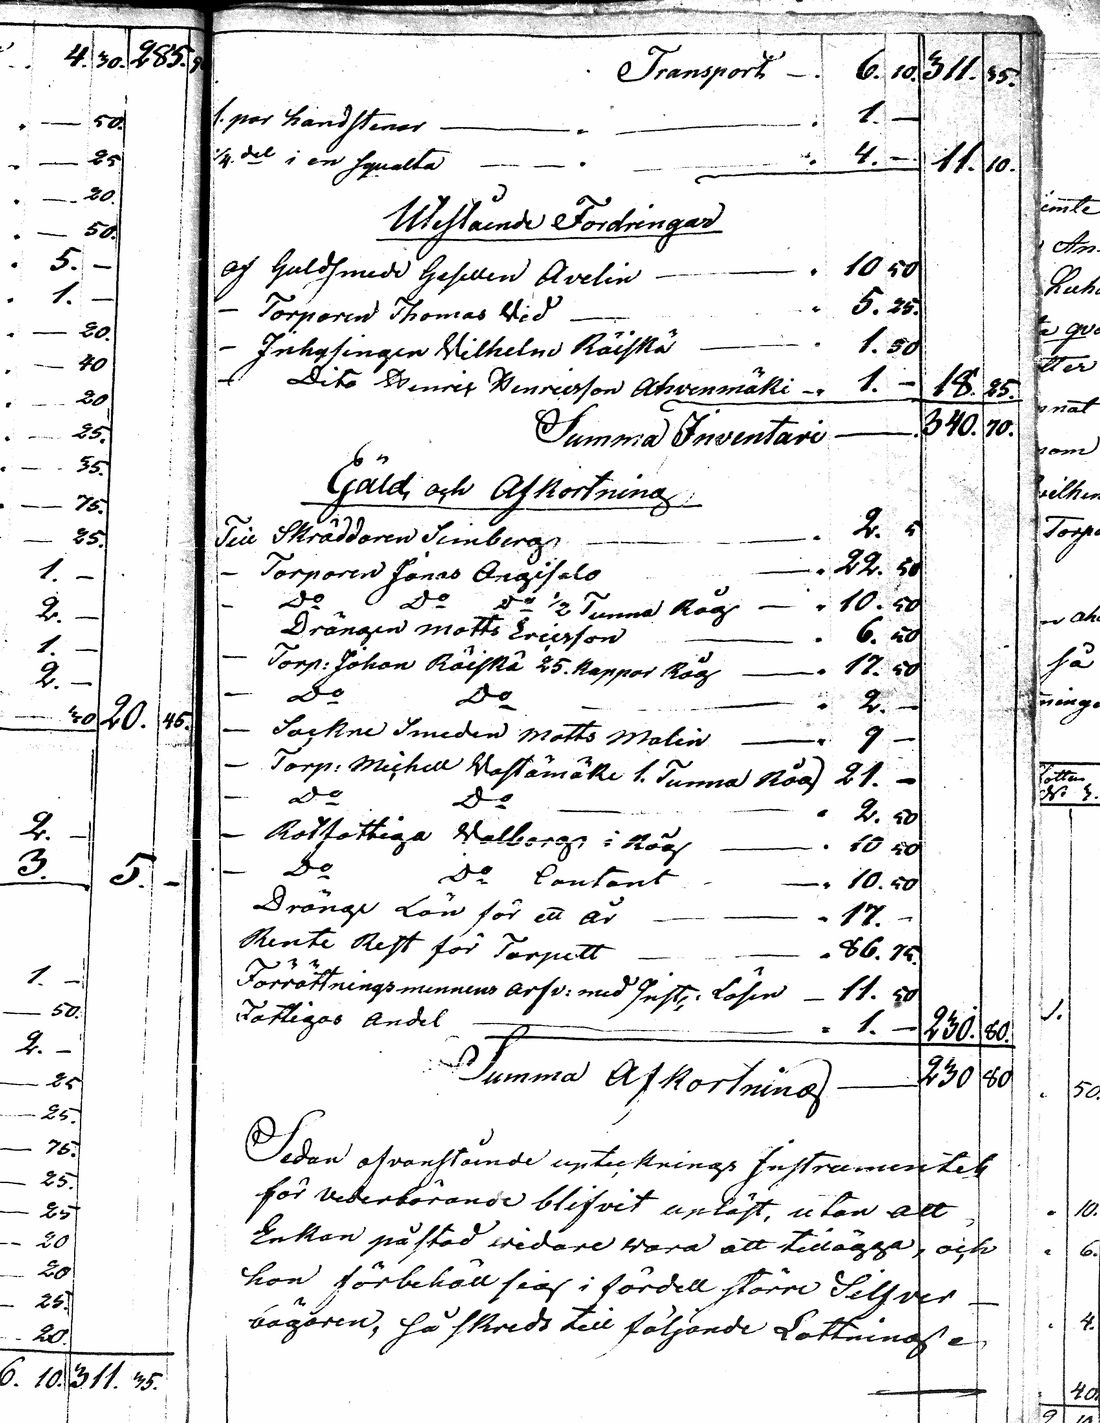 Transport — 6. 10. 311. 35.
1. par handstenar — 1. —
1/4. del i en squalta — 4. — 11. 10.
Utestående Fordringar
af Guldsmeds Gesellen Avelin — 10 50
— Torparen Thomas Wid — 5. 25.
— Inhysingen Wilhelm Räiskä — 1. 50
— Dito Henric Henricsson Ahvenmäki — 1. — 18. 25.
Summa Inventari — 340. 70.
Gäld, och Afkortning
Till Skräddaren Simberg — 2. 5
— Torparen Jonas Ongisalo — 22. 50
— Do Do Do 1/2 Tunna Råg — 10. 50
Drängen Matts Ericsson — 6. 50
— Torp: Johan Räiskä 25. Kappar Råg — 17. 50
— Do Do — 2. —
— Sockne Smeden Matts Malin — 9 —
— Torp: Michell Wastamäki 1. Tunna Råg 21. —
— Do Do — 2. 50
— Rotfattiga Walborg i Råg — 10 50
— Do Do Contant — 10. 50
Drängs Lön för ett år — 17. —
Rente Rest för Torpett — 86. 75.
Förrättningsmennens arfv: med Inst: Lösen — 11. 50
Fattigas Andel — 1. — 230. 80.
Summa Afkortning — 230 80
Sedan ofvanstående upteknings Instrumentet
för vederbörande blifvit upläst, utan att
Enkan påstod widare wara att tillägga, och
hon förbehöll sig i fördell större Silfver
bägaren, så skreds till följande Lottning
4. 30. 285.
— 50.
— 25
— 20.
— 50.
5. —
1. —
— 20.
— 40
— 20
— 25.
— 35.
— 75.
— 25.
1. —
2. —
1. —
2. —
— 30 20. 45.
2. —
3. 5. —
1. —
— 50.
2. —
— 25
— 25.
— 75.
— 25.
— 25
— 20
— 20
— 25.
— 20.
6. 10. 311. 35.
Torp
så
1.
50.
10.
6.
4.
40.